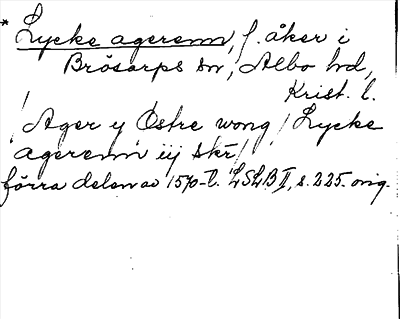 * Lycke agerenn, f. åker i
Brösarps sn, Albo hd,
Krist. l.
Ager y Östre wong / Lycke
agerenn iij skr /
förra delen av 1570-t. LSLB II, s. 225. orig.